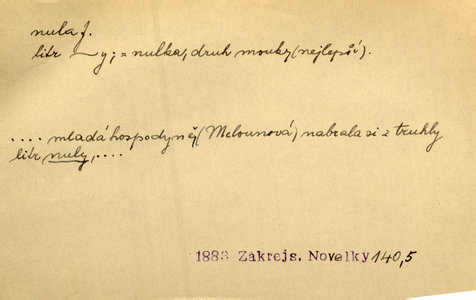 nula f.
litr ~y; = nulka, druh mouky (nejlepší).
.... mladá hospodyněj (Melounová) nabrala si z truhly
litr nuly, ....
1883 Zákrejs. Novelky 140,5